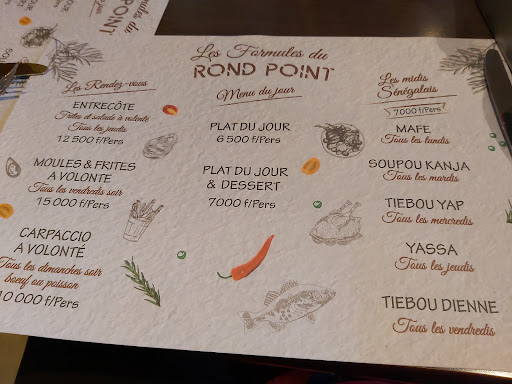 Les Formules du
ROND POINT
Les Rendez-vous
ENTRECÔTE
Frites et salade à volonté
Tous les jeudis
12 500 f/Pers
MOULES & FRITES
A VOLONTE
Tous les vendredis soir
15 000 f/Pers
CARPACCIO
A VOLONTÉ
Tous les dimanches soir
boeuf ou poisson
10 000 f/Pers
Menu du jour
PLAT DU JOUR
6 500 f/Pers
PLAT DU JOUR
& DESSERT
7000 f/Pers
Les midis
Sénégalais
7000 f/Pers
MAFE
Tous les lundis
SOUPOU KANJA
Tous les mardis
TIEBOU YAP
Tous les mercredis
YASSA
Tous les jeudis
TIEBOU DIENNE
Tous les vendredis